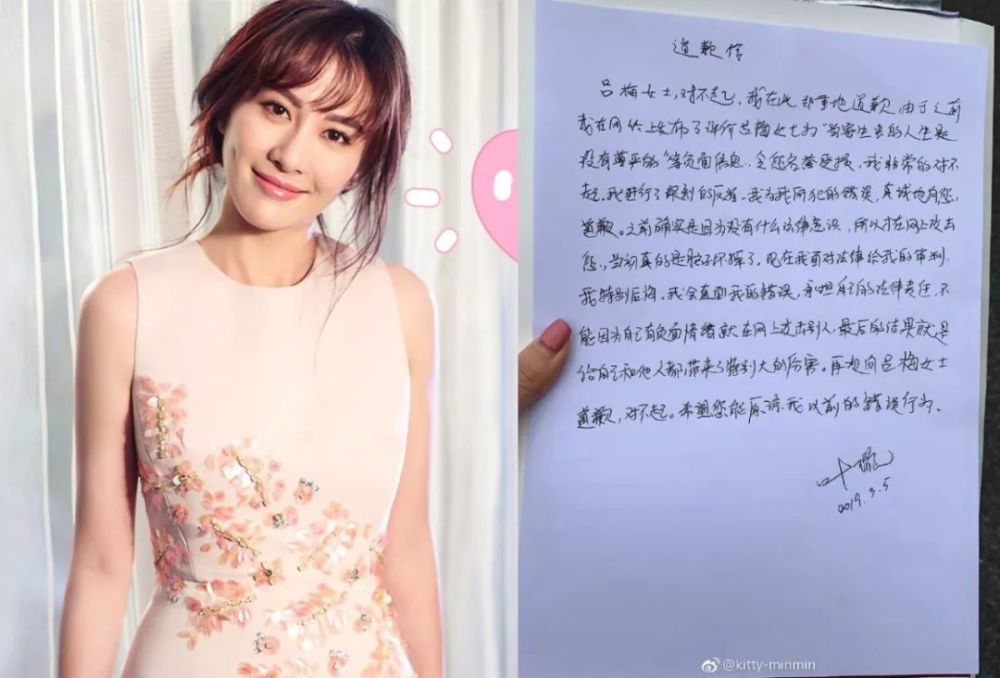 道歉信
吕梅女士，对不起，我在此郑重地道歉，由于之前
我在网络上发布了评价吕梅女士为“当寄生虫的人生是
没有尊严的”等负面信息，令您名誉受损，我非常的对不
起，我进行了深刻的反省。我为我所犯的错误，真诚地向您
道歉。之前确实是因为没有什么法律意识，所以才在网上攻击
您，当初真的是脑子坏掉了，现在我面对法律给我的审判，
我特别后悔。我会直面我的错误，承担自己的法律责任，不
能因为自己有负面情绪就在网上攻击别人，最后的结果就是
给自己和他人都带来了特别大的厉害。再次向吕梅女士
道歉，对不起。希望您能原谅我以前的错误行为。
叶璇
2019.3.5
@kitty-minmin